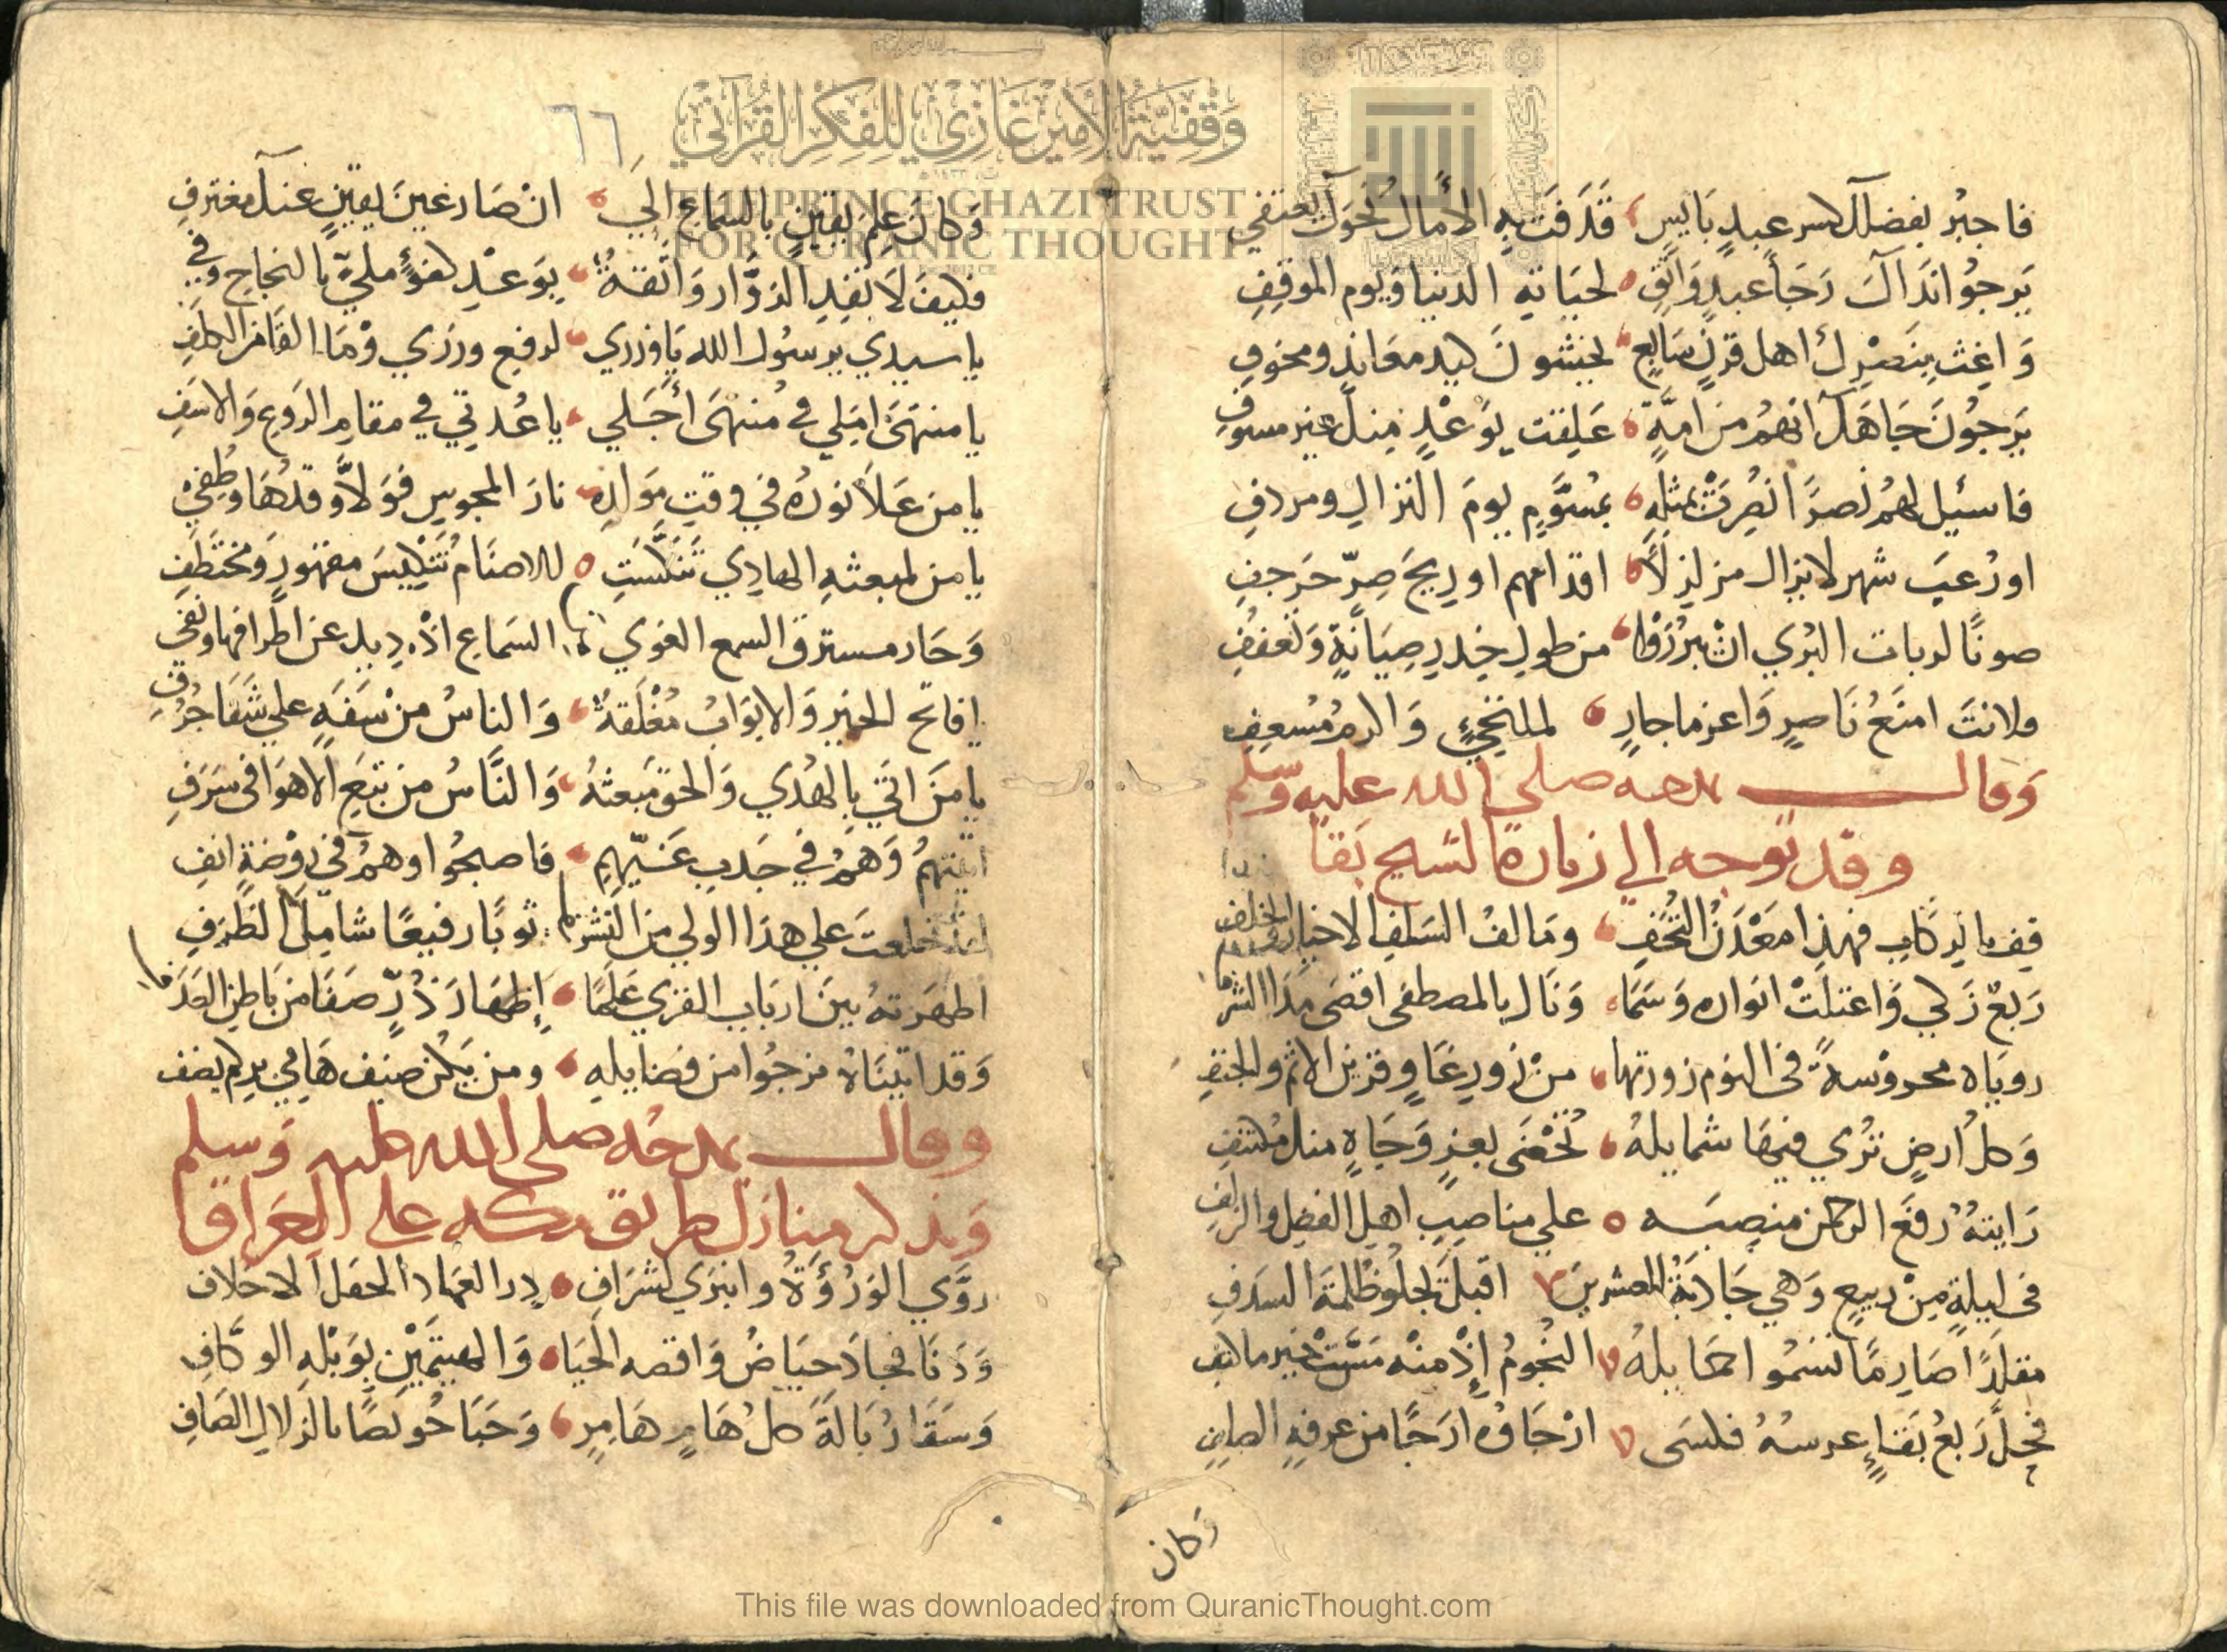 فاجبر بفضلك كسر عبد بايس قذفت به الامال نحوك يعتفي
يرجو نداك رجا عبد واثق لحياته الدنيا ويوم الموقف
واغث بنصرك اهل قرن سابع يخشون كيد معاند ومخوف
يرجون جاهك انهم من امة علقت بوعد منك غير مسوف
فاسئيل لهم نصرا نصرت بمثله بمسوم يوم النزال ومردف
او رعب شهر لا يزال مزلزلا اقدامهم او ريح صر حرجف
صونا لربات البري ان يبرزوا من طول خدر صيانة وتعفف
ولانت امنع ناصر واعز ما جار لملتجئ والرم مسعف
وقال يمدحه صلى الله عليه وسلم
وقد توجه الي زيارة الشيخ بقا
قف بالركاب فهذا معدن التحف ومالف السلف الاخيار والخلف
ربع زكي واعتلت انواره وسما ونال بالمصطفى اقصى مدا الشرف
روياه محروسة في النوم زورتها من زور غاو وقرين الاثم والجنف
وكل ارض تري فيها شمايله تخضى بعز وجاه منك مكتنف
رايته رفع الرحمن منصبه علي مناصب اهل الفضل والزلف
في ليلة من ربيع وهي حادية العشرين اقبل يجلو ظلمة السدف
مقلدا صارما تسموا حمايله النجوم إذ منه مست خير ملتف
فحل ربع بقاء عرسه فكسى ارجاوه ارجا من عرفه
وكان
٦٦
وكان علم يقين بالسماع الي ان صار عين يقين عند مغترف
فكيف لا تفد الزوار واثقة بوعد كفؤ ملي بالنجاح وفي
يا سيدي يرسول الله يا وزري لدفع وزري وما القا من الكلف
يا منتهى املي في منتهى أجلي يا عدتي في مقام الروع والاسف
يا من علا نوره في وقت مولده نار المجوس فولا وقدها وطفي
يا من لمبعثه الهادي تنكست للاصنام تنكيس مقهور ومختطف
وحار مسترق السمع الغوي السماع اذ ديد عن اطرافها ونفي
يا فاتح الخير والابواب مغلقة والناس من سفه علي شفا جرف
يا من اتي بالهدي والحق مبعثه والناس من تبع الاهوا في سرف
اتيتهم وهم في جدب غيهم فاصبحوا وهم في روضة انف
خلعت علي هذا الولي من النشر ثوبا رفيعا شامل الطرف
اظهرته بين ارباب القري علما إظهار ذر صفا من باطن الصدف
وقد اتيناه نرجوا من فضايله ومن يكن ضيف هامي بركم يضف
وقال يمدحه صلى الله عليه وسلم
ويذكر منازل طريق مكه على العراق
روي الورؤة وانبري لشراف درر العهاد الحفل الاخلاف
ودنا فجاد حياض واقصه الحيا والهيتمين بوبله الوكاف
وسقا زبالة كل هام هامر وحبا حويصا بالزلال الصاف